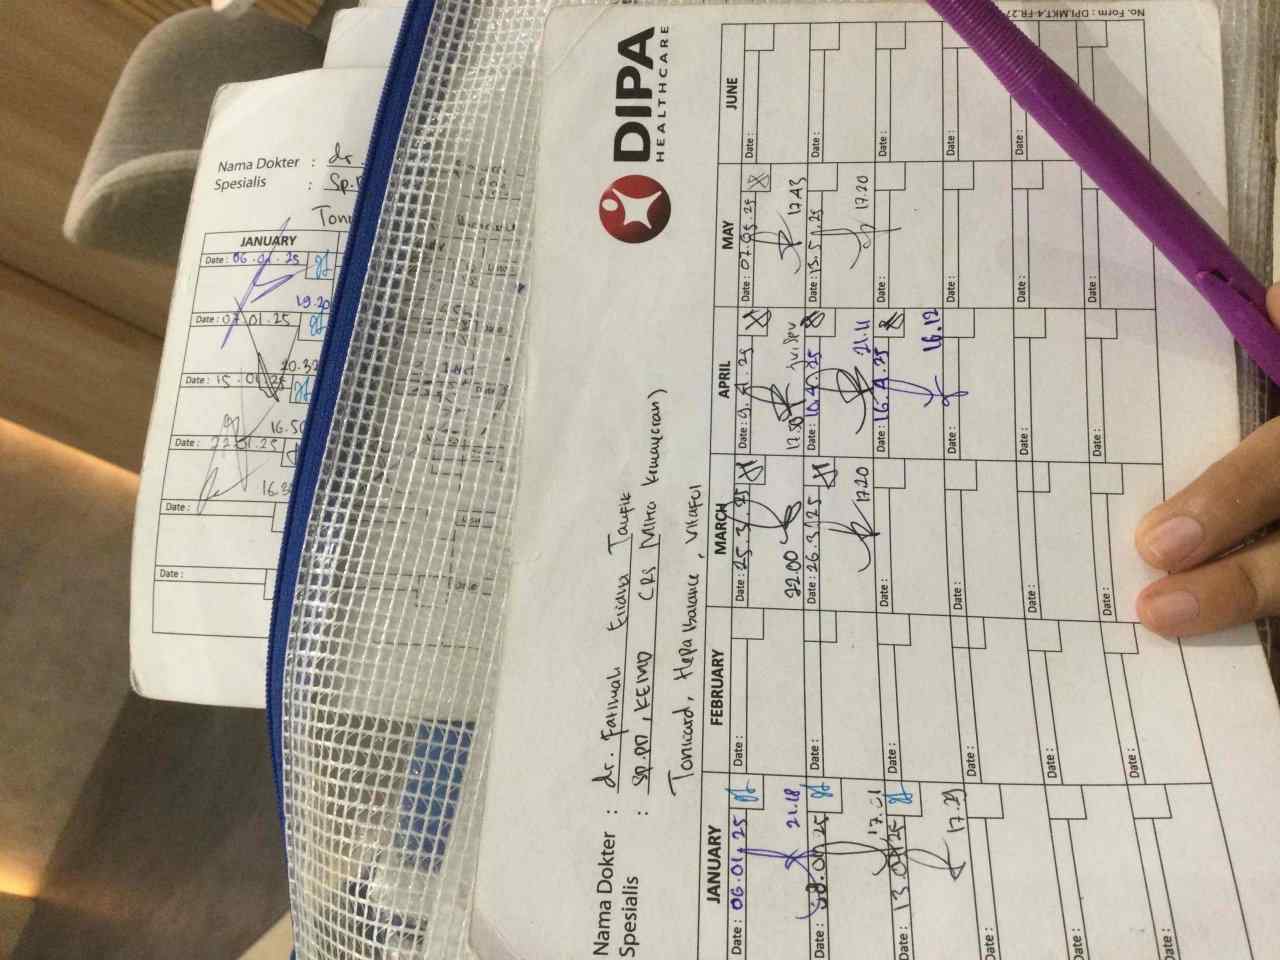 DIPA
HEALTHCARE
No. Form : DPI.MKT.4-FR.27
Nama Dokter : dr. Fatimah Eliana Taufik
Spesialis : Sp.PD, KEMD (RS Mitra Kemayoran)
Tonicard, Hepa Balance,
JANUARY
Date : 06.01.25
21.18
Date :
Date : 13.01.25
17.29
Date :
Date :
Date :
FEBRUARY
Date :
Date :
Date :
Date :
Date :
Date :
MARCH
Date : 25.3.25
22.00
Date : 26.3.25
17.20
Date :
Date :
Date :
Date :
APRIL
Date : 9.4.25
17.50
Date : 10.4.25
21.11
Date : 16.4.25
16.12
Date :
Date :
Date :
MAY
Date : 07.05.25
17.43
Date : 13.5.25
17.20
Date :
Date :
Date :
Date :
JUNE
Date :
Date :
Date :
Date :
Date :
Nama Dokter : dr.
Spesialis : Sp.P
JANUARY
Date : 06.01.25
19.20
Date : 07.01.25
20.32
Date : 15.01.25
16.50
Date : 22.01.25
Date :
Date :